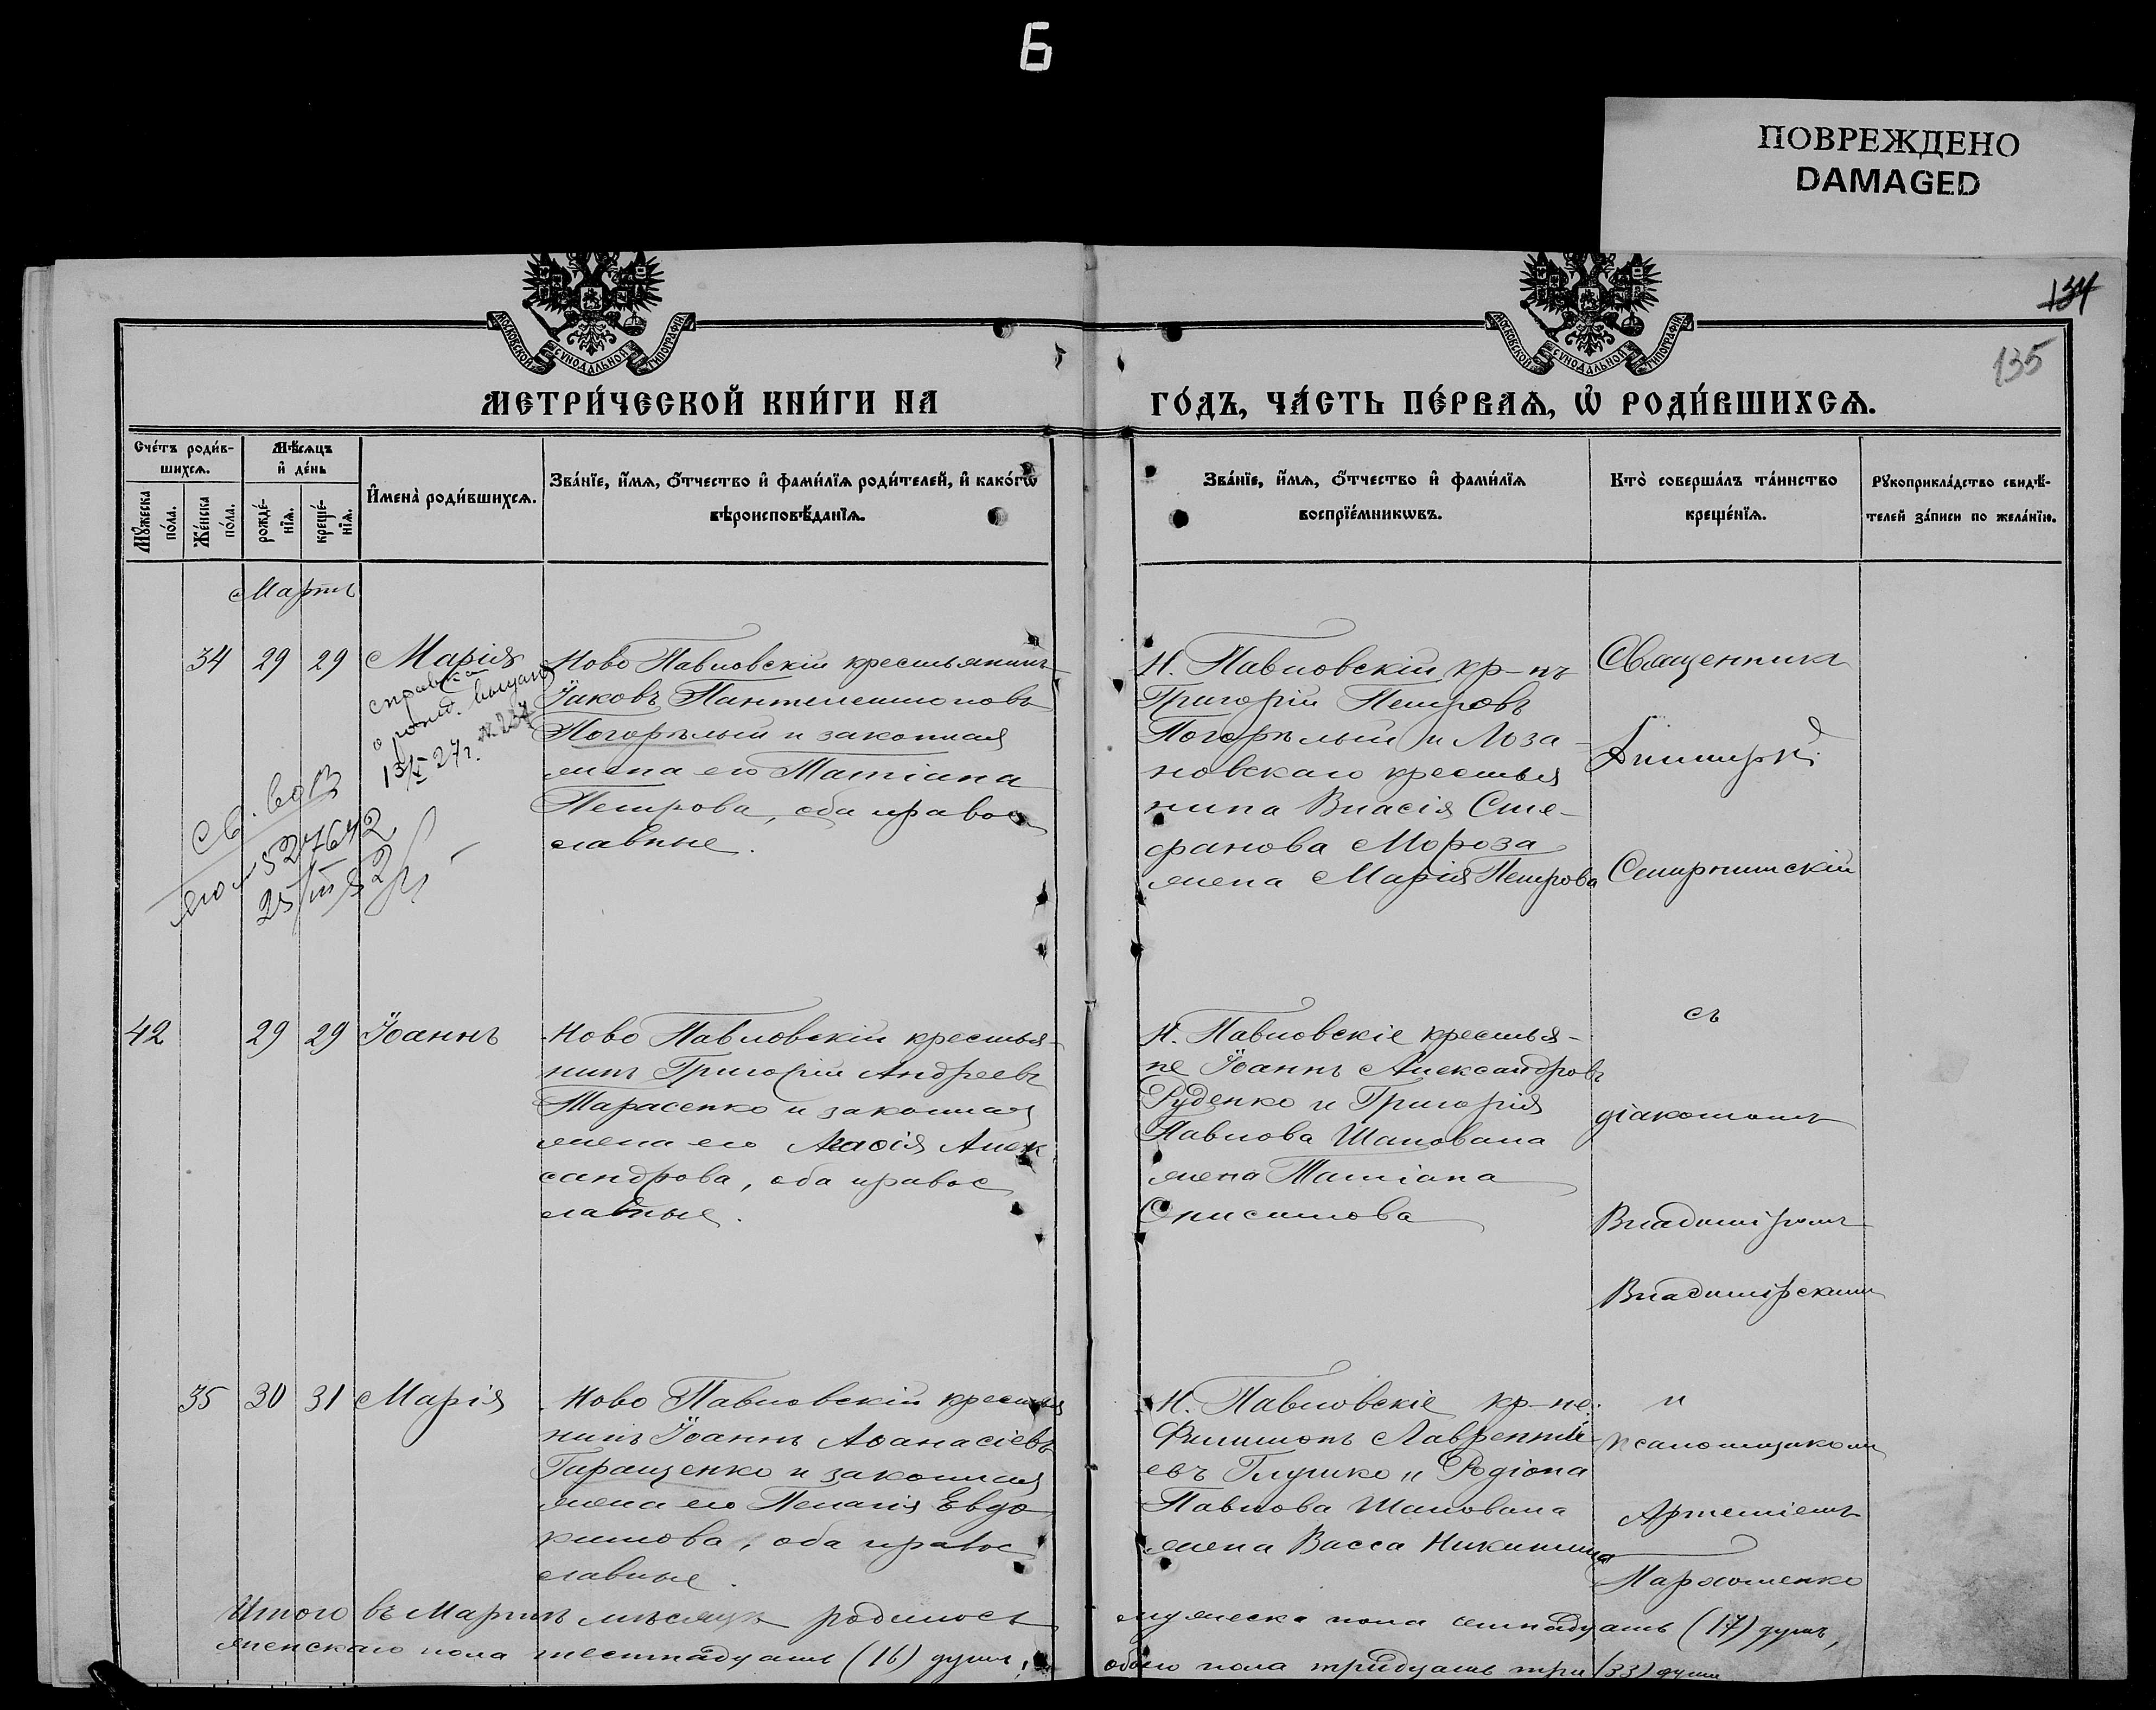 Б
ПОВРЕЖДЕНО
DAMAGED
134
135
МОСКОВСКОЙ СѴНОДАЛЬНОЙ ТИПОГРАФІИ
МОСКОВСКОЙ СѴНОДАЛЬНОЙ ТИПОГРАФІИ
МЕТРИ́ЧЕСКОЙ КНИ́ГИ НА
ГО́ДЪ, ЧА́СТЬ ПЕ́РВАѦ, Ѡ҆ РОДИ́ВШИХСѦ.
Сче́тъ роди́в-
шихсѧ.
Мꙋ́жеска
по́ла.
Же́нска
по́ла.
Мѣ́сѧцъ
и҆ де́нь
рожде́-
нїѧ.
креще́-
нїѧ.
И҆мена̀ роди́вшихсѧ.
Зва́нїе, и҆́мѧ, ѻ҆́тчество и҆ фами́лїѧ роди́телей, и҆ како́гѡ
вѣроисповѣ́данїѧ.
Зва́нїе, и҆́мѧ, ѻ҆́тчество и҆ фами́лїѧ
воспрїе́мникѡвъ.
Кто̀ соверша́лъ та́инство
креще́нїѧ.
Рꙋкоприкла́дство свидѣ́-
телей за́писи по жела́нїю.
Мартъ
34 29 29 Марія
справка
о рожд.
13/X 27г. № 237
527642
25/III 52
Ново Павловскій крестьянинъ
Іаковъ Пантелеимоновъ
Погорѣлый и законная
жена его Татіана
Петрова, оба право
славные.
Н. Павловскій кр-нъ
Григорій Петровъ
Погорѣлый и Лоза-
новскаго крестья
нина Власія Сте-
фанова Мороза
жена Марія Петрова
Священникъ
Димитрій
42 29 29 Іоаннъ
Ново Павловскій крестья-
нинъ Григорій Андреевъ
Тарасенко и законная
жена его Агафія Алек
сандрова, оба правос
лавные.
Н. Павловскіе крестья-
не Іоаннъ Александровъ
Руденко и Григорія
Павлова Шаповала
жена Татіана
Онисимова
съ
діакономъ
Владиміромъ
Владимірскимъ
35 30 31 Марія
Ново Павловскій крестья
нинъ Іоаннъ Аѳанасіевъ
Геращенко и законная
жена его Пелагія Евдо
кимова, оба правос
лавные.
Н. Павловскіе кр-не:
Филимонъ Лаврентій-
евъ Глушко и Родіона
Павлова Шаповала
жена Васса Никитина
и
псаломщикомъ
Артеміемъ
Пархоменко
Итого въ Мартѣ мѣсяцѣ родилось мужеска пола семнадцать (17) душъ,
женскаго пола шестнадцать (16) душъ, обоего пола тридцать три (33) души